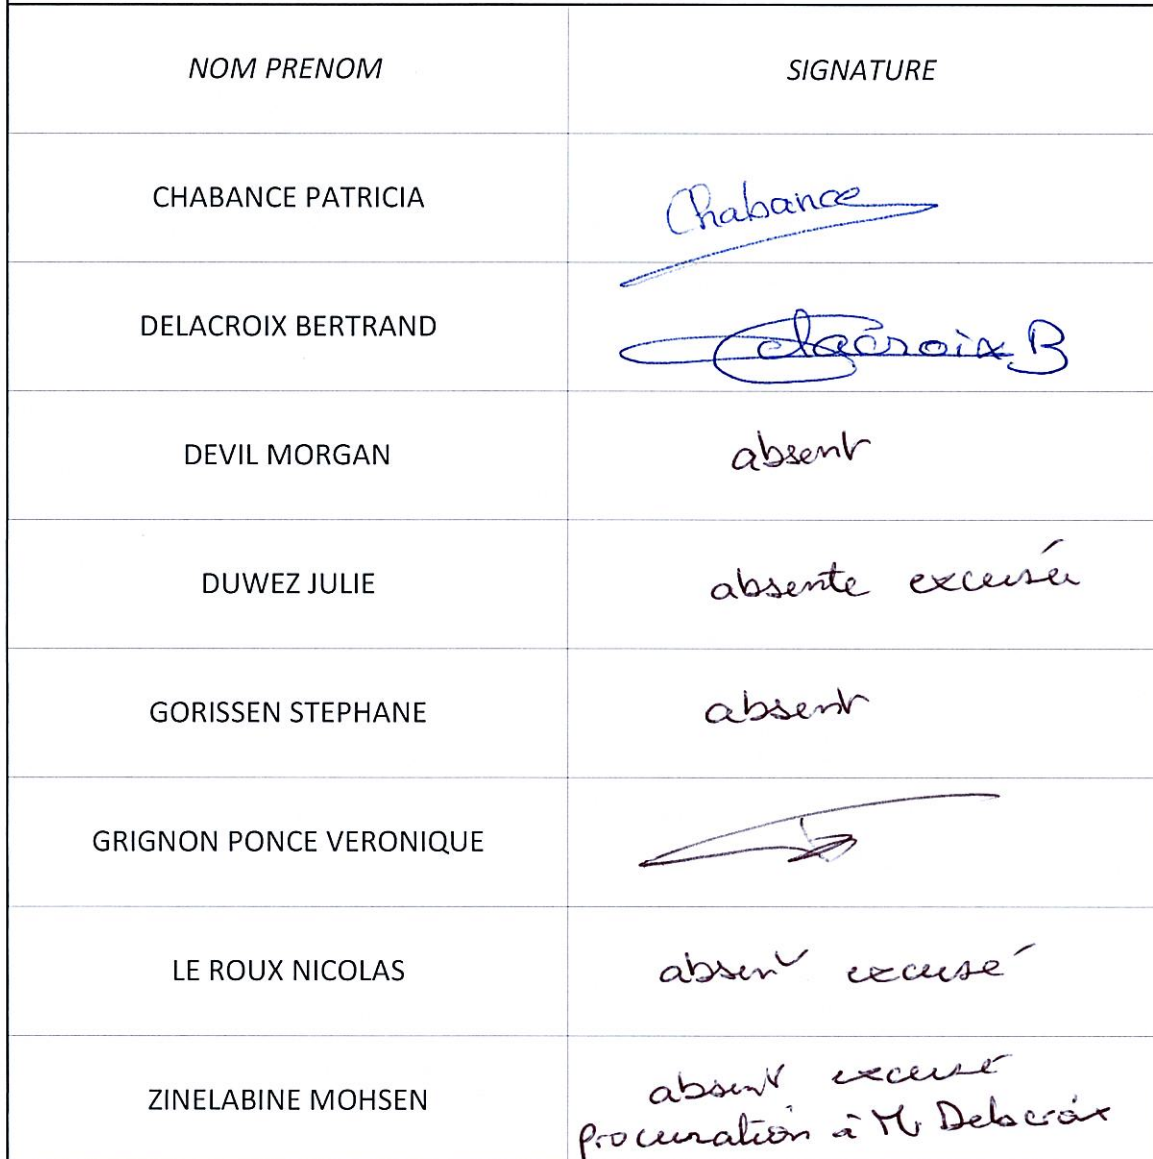 NOM PRENOM SIGNATURE
CHABANCE PATRICIA Chabance
DELACROIX BERTRAND Delacroix B
DEVIL MORGAN absent
DUWEZ JULIE absente excusée
GORISSEN STEPHANE absent
GRIGNON PONCE VERONIQUE
LE ROUX NICOLAS absent excusé
ZINELABINE MOHSEN absent excusé
procuration à Mr Delacroix